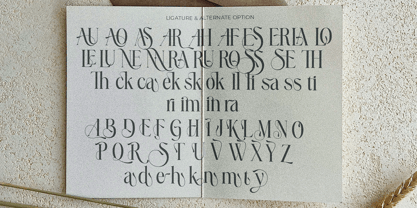 LIGATURE & ALTERNATE OPTION
AU AO AS AR AH AF ES ER LA LO
LE LU NE NN RA RU RO SS SE TH
Th ck ca ek sk ok ll fi sa ss ti
ri im in ra
A B D E F G H I J K L M N O
P Q R S T U V W X Y Z
a d e h k n m t y